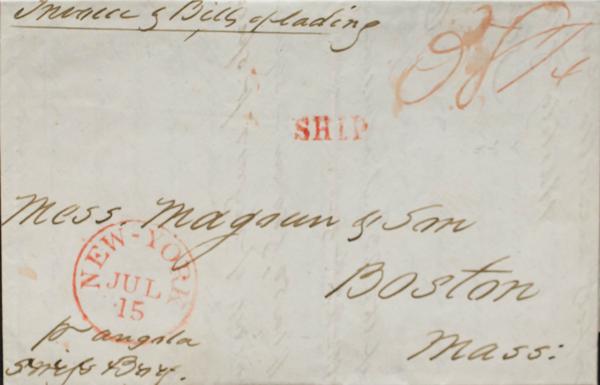 Invoice & Bills of lading
SHIP
Mess. Magoun & Son
Boston
Mass:
NEW-YORK
JUL
15
pr angola
Brig.